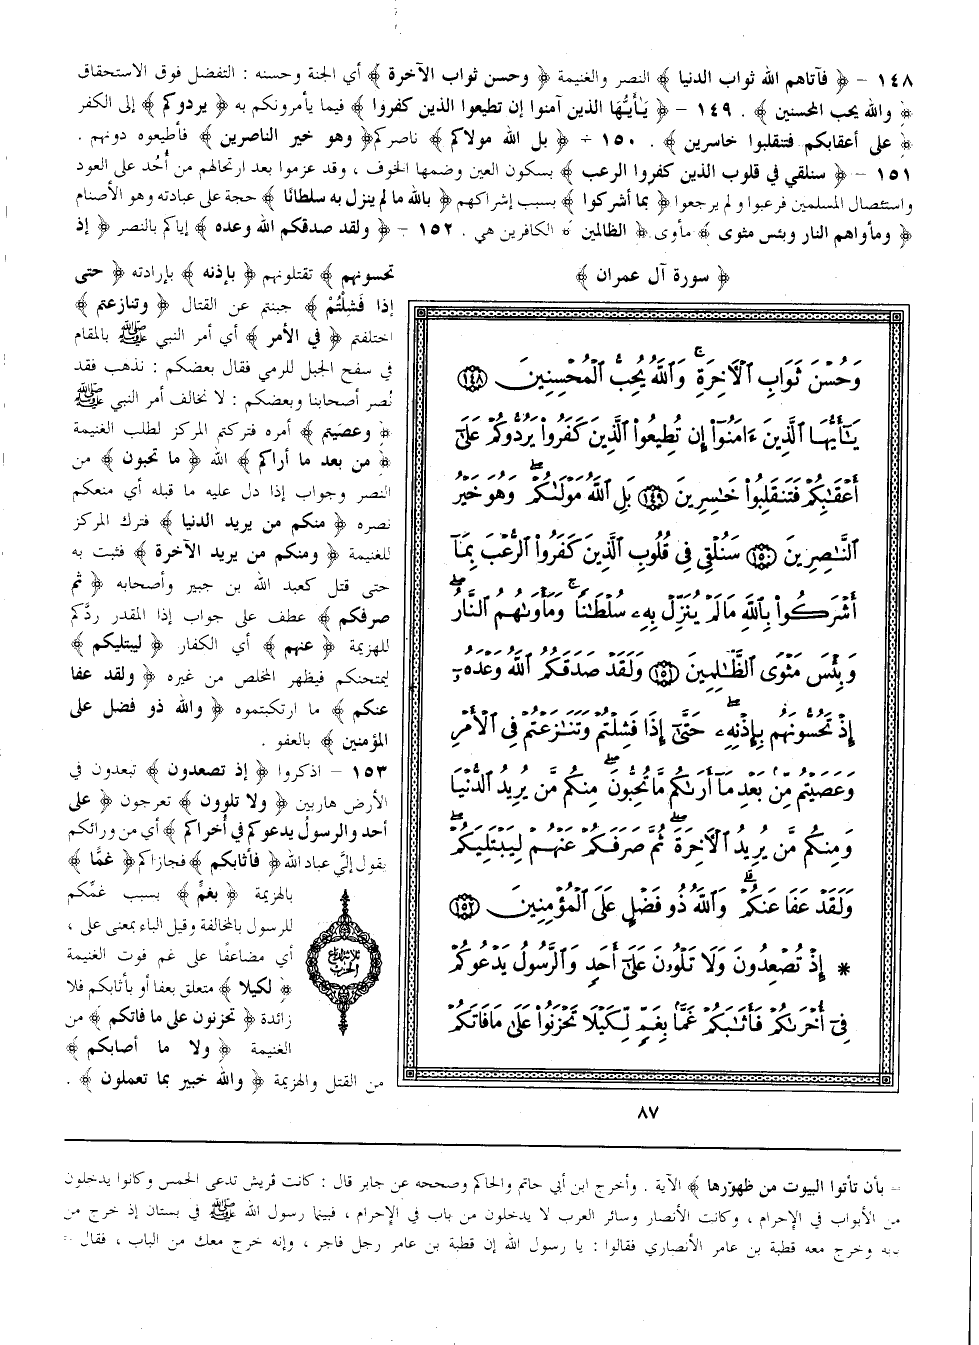 ١٤٨ – ﴿ فآتاهم الله ثواب الدنيا ﴾ النصر والغنيمة ﴿ وحسن ثواب الآخرة ﴾ أي الجنة وحسنه : التفضل فوق الاستحقاق
﴿ والله يحب المحسنين ﴾ . ١٤٩ – ﴿ يَـٰأَيُّها الذين آمنوا إن تطيعوا الذين كفروا ﴾ فيما يأمرونكم به ﴿ يردوكم ﴾ إلى الكفر
﴿ على أعقابكم فتنقلبوا خاسرين ﴾ . ١٥٠ – ﴿ بل الله مولاكم ﴾ ناصركم ﴿ وهو خير الناصرين ﴾ فأطيعوه دونهم .
١٥١ – ﴿ سنلقي في قلوب الذين كفروا الرعب ﴾ بسكون العين وضمها الخوف ، وقد عزموا بعد ارتحالهم من أُحُد على العود
واستئصال المسلمين فرعبوا ولم يرجعوا ﴿ بما أشركوا ﴾ بسبب إشراكهم ﴿ بالله ما لم ينزل به سلطانًا ﴾ حجة على عبادته وهو الأصنام
﴿ ومأواهم النار وبئس مثوى ﴾ مأوى ﴿ الظالمين ﴾ الكافرين هي . ١٥٢ – ﴿ ولقد صدقكم الله وعده ﴾ إياكم بالنصر ﴿ إذ
تحسونهم ﴾ تقتلونهم ﴿ بإذنه ﴾ بإرادته ﴿ حتى
إذا فَشلْتُمْ ﴾ جبنتم عن القتال ﴿ وتنازعتم ﴾
اختلفتم ﴿ في الأمر ﴾ أي أمر النبي ﷺ بالمقام
في سفح الجبل للرمي فقال بعضكم : نذهب فقد
نُصر أصحابنا وبعضكم : لا نخالف أمر النبي ﷺ
﴿ وعصيتم ﴾ أمره فتركتم المركز لطلب الغنيمة
﴿ من بعد ما أراكم ﴾ الله ﴿ ما تحبون ﴾ من
النصر وجواب إذا دل عليه ما قبله أي منعكم
نصره ﴿ منكم من يريد الدنيا ﴾ فترك المركز
للغنيمة ﴿ ومنكم من يريد الآخرة ﴾ فثبت به
حتى قتل كعبد الله بن جبير وأصحابه ﴿ ثم
صرفكم ﴾ عطف على جواب إذا المقدر ردَّكم
للهزيمة ﴿ عنهم ﴾ أي الكفار ﴿ ليبتليكم ﴾
ليمتحنكم فيظهر المخلص من غيره ﴿ ولقد عفا
عنكم ﴾ ما ارتكبتموه ﴿ والله ذو فضل على
المؤمنين ﴾ بالعفو .
١٥٣ – اذكروا ﴿ إذ تصعدون ﴾ تبعدون في
الأرض هاربين ﴿ ولا تلوون ﴾ تعرجون ﴿ على
أحد والرسولُ يدعوكم في أُخراكم ﴾ أي من ورائكم
يقول إليَّ عباد الله ﴿ فأثابكم ﴾ فجازاكم ﴿ غمًّا ﴾
بالهزيمة ﴿ بغمٍّ ﴾ بسبب غمِّكم
للرسول بالمخالفة وقيل الباء بمعنى على ،
أي مضاعفًا على غم فوت الغنيمة
﴿ لكيلا ﴾ متعلق بعفا أو بأثابكم فلا
زائدة ﴿ تحزنون على ما فاتكم ﴾ من
الغنيمة ﴿ ولا ما أصابكم ﴾
من القتل والهزيمة ﴿ والله خبير بما تعملون ﴾ .
﴿ سورة آل عمران ﴾
وَحُسْنَ ثَوَابِ ٱلْـَٔاخِرَةِ ۗ وَٱللَّهُ يُحِبُّ ٱلْمُحْسِنِينَ ١٤٨
يَـٰٓأَيُّهَا ٱلَّذِينَ ءَامَنُوٓا۟ إِن تُطِيعُوا۟ ٱلَّذِينَ كَفَرُوا۟ يَرُدُّوكُمْ عَلَىٰٓ
أَعْقَـٰبِكُمْ فَتَنقَلِبُوا۟ خَـٰسِرِينَ ١٤٩ بَلِ ٱللَّهُ مَوْلَىٰكُمْ ۖ وَهُوَ خَيْرُ
ٱلنَّـٰصِرِينَ ١٥٠ سَنُلْقِى فِى قُلُوبِ ٱلَّذِينَ كَفَرُوا۟ ٱلرُّعْبَ بِمَآ
أَشْرَكُوا۟ بِٱللَّهِ مَا لَمْ يُنَزِّلْ بِهِۦ سُلْطَـٰنًا ۖ وَمَأْوَىٰهُمُ ٱلنَّارُ ۚ
وَبِئْسَ مَثْوَى ٱلظَّـٰلِمِينَ ١٥١ وَلَقَدْ صَدَقَكُمُ ٱللَّهُ وَعْدَهُۥٓ
إِذْ تَحُسُّونَهُم بِإِذْنِهِۦ ۖ حَتَّىٰٓ إِذَا فَشِلْتُمْ وَتَنَـٰزَعْتُمْ فِى ٱلْأَمْرِ
وَعَصَيْتُم مِّنۢ بَعْدِ مَآ أَرَىٰكُم مَّا تُحِبُّونَ ۚ مِنكُم مَّن يُرِيدُ ٱلدُّنْيَا
وَمِنكُم مَّن يُرِيدُ ٱلْـَٔاخِرَةَ ۚ ثُمَّ صَرَفَكُمْ عَنْهُمْ لِيَبْتَلِيَكُمْ ۖ
وَلَقَدْ عَفَا عَنكُمْ ۗ وَٱللَّهُ ذُو فَضْلٍ عَلَى ٱلْمُؤْمِنِينَ ١٥٢
* إِذْ تُصْعِدُونَ وَلَا تَلْوُۥنَ عَلَىٰٓ أَحَدٍ وَٱلرَّسُولُ يَدْعُوكُمْ
فِىٓ أُخْرَىٰكُمْ فَأَثَـٰبَكُمْ غَمًّۢا بِغَمٍّ لِّكَيْلَا تَحْزَنُوا۟ عَلَىٰ مَا فَاتَكُمْ
٨٧
= بأن تأتوا البيوت من ظهورها ﴾ الآية . وأخرج ابن أبي حاتم والحاكم وصححه عن جابر قال : كانت قريش تدعى الحمس وكانوا يدخلون
من الأبواب في الإحرام ، وكانت الأنصار وسائر العرب لا يدخلون من باب في الإحرام ، فبينما رسول الله ﷺ في بستان إذ خرج من
بابه وخرج معه قطبة بن عامر الأنصاري فقالوا : يا رسول الله إن قطبة بن عامر رجل فاجر ، وإنه خرج معك من الباب ، فقال =